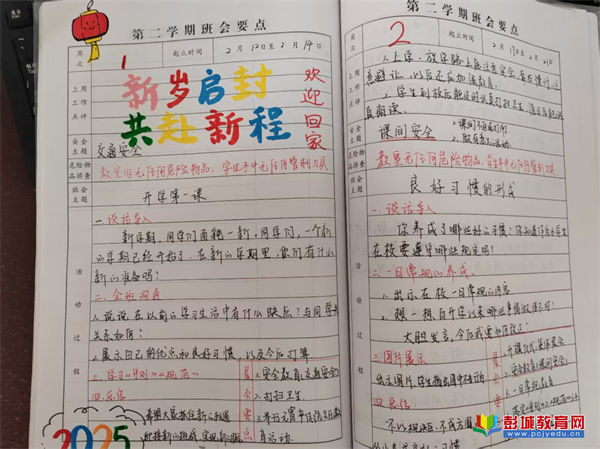 第二学期班会要点
周次
1
起止时间
2月12日至2月14日
上周工作点评
新岁启封
共赴新程
欢迎回家
安全主题
交通安全
危险物品排查
教室内无任何危险物品,学生手中无任何管制刀具
班会主题
开学第一课
活动过程
一、谈话导入
新学期,同学们面貌一新。同学们,一个新
的学期已经开始了,在新的学期里,你们有什么
新的准备吗?
二、全班洞商
1.说说在以前的学习生活中有什么缺点?与同学
关系如何?
2.展示自己的优点和良好习惯,以及今后打算
三、学习《守则》《规范》
四、总结
希望大家抓住新的机遇
迎接新的挑战,
2025
2.打扫卫生
第二学期班会要点
周次
2
起止时间
2月17日至2月21日
上周工作点评
1.上学、放学路上能注意安全,
以后还应加强教育。
2.学生到校后能及时认真打扫卫生,
真朗读。
安全主题
课间安全
危险物品排查
教室内无任何危险物品,学生手中无任何管制刀具
班会主题
良好习惯的形成
活动过程
一、谈话导入
你养成了哪些好的习惯?你知道作为小学生
在校要遵守哪些规定吗?
二、一日常规的养成
1.出示在校一日常规的内容
2.想一想自开学以来哪些事情做得不好?
大胆发言,今后我要如何改正?
三、图片展示
依示图片,学生指出图中不当行为
四、总结
不以规矩,不成方圆
2.安全教育(课间安全)
3.一日常规教育
彭城教育网
www.pcjyedu.cn